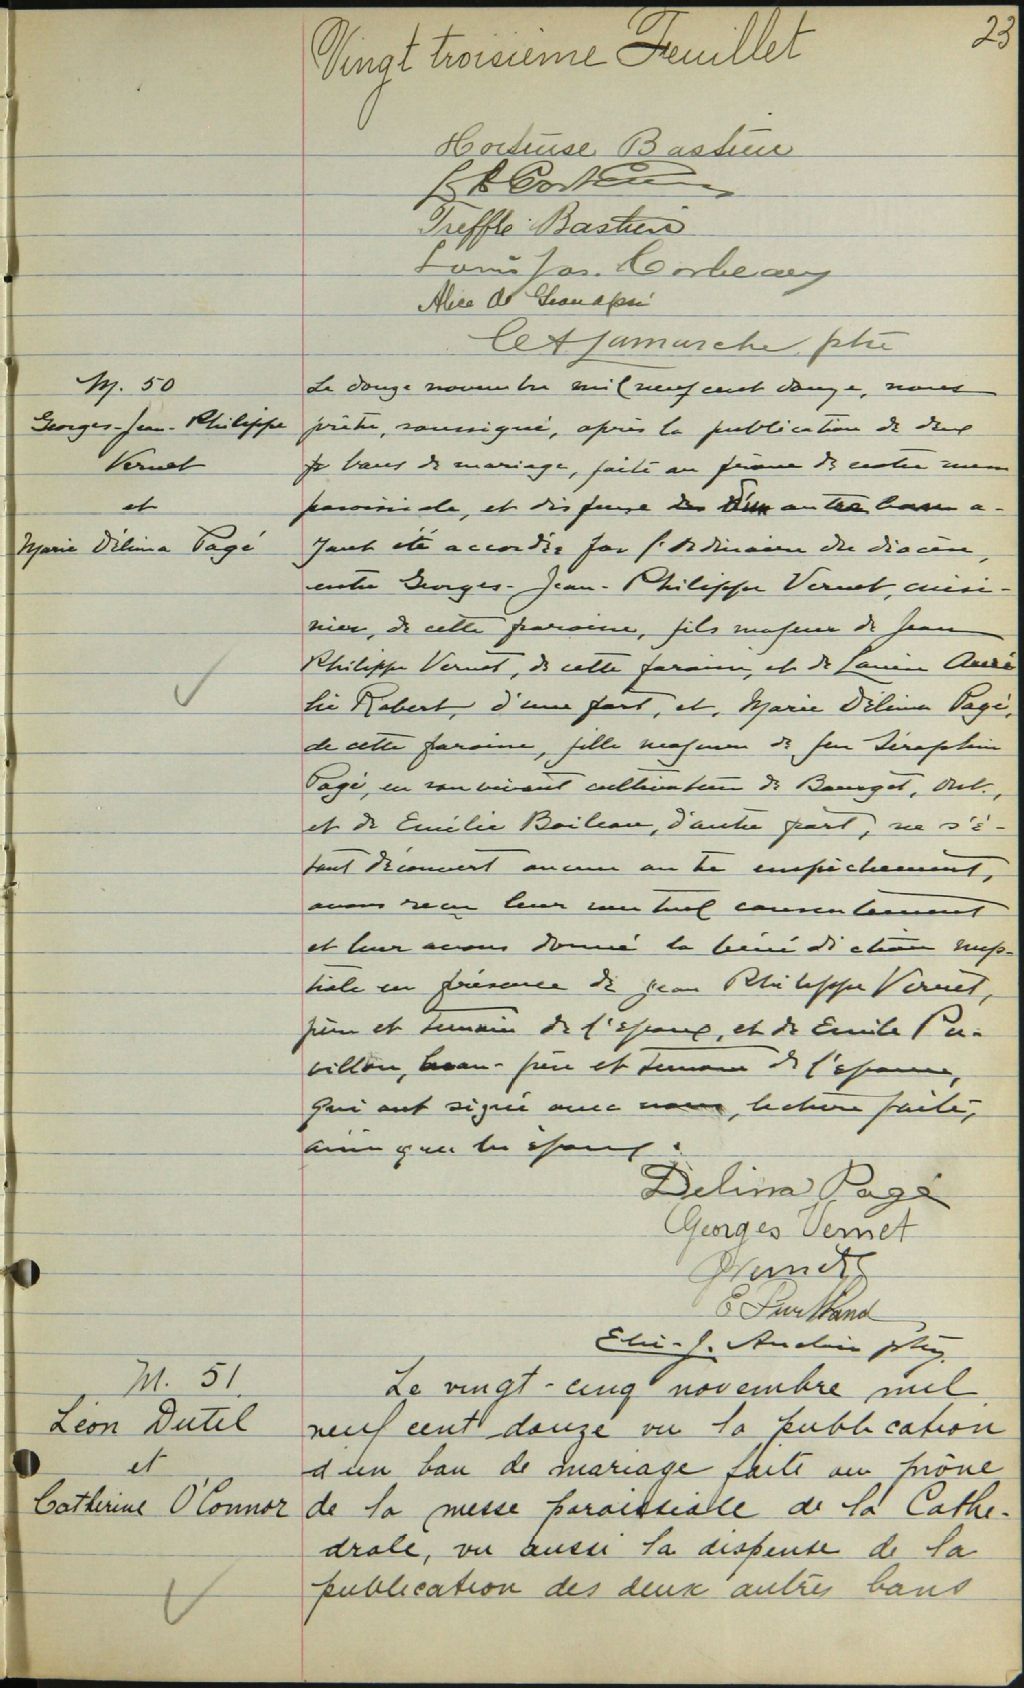 23
Vingt troisième Feuillet
Hortense Bastien
Treffle Bastien
Louis Jos. Corbeau
Alice de
Lamarche ptre
M. 50
Georges-Jean-Philippe
Vernet
et
Marie Délima Pagé
Le douze novembre mil neuf cent douze, nous
prêtre, soussigné, après la publication de deux
bans de mariage, faite au prône de notre messe
paroissiale, et dispense d'un autre ban a-
yant été accordée par l'Ordinaire du diocèse,
entre Georges-Jean-Philippe Vernet, cuisi-
nier, de cette paroisse, fils majeur de Jean
Philippe Vernet, de cette paroisse, et de Aurè
lie Robert, d'une part, et, Marie Délima Pagé,
de cette paroisse, fille majeure de feu Séraphin
Pagé, en son vivant cultivateur de Bourget, Ont.,
et de Emélie Boileau, d'autre part, ne s'é-
tant découvert aucun autre empêchement,
avons reçu leur mutuel consentement
et leur avons donné la bénédiction nup-
tiale en présence de Jean Philippe Vernet,
père et témoin de l'époux, et de Emile Pa-
villon, beau-père et témoin de l'épouse,
qui ont signé avec nous, lecture faite,
ainsi que les époux.
Delima Pagé
Georges Vernet
JVernet
E
Elie-J. ptre
M. 51
Léon Dutil
et
Catherine O'Connor
Le vingt-cinq novembre mil
neuf cent douze vu la publication
d'un ban de mariage faite au prône
de la messe paroissiale de la Cathe-
drale, vu aussi la dispense de la
publication des deux autres bans